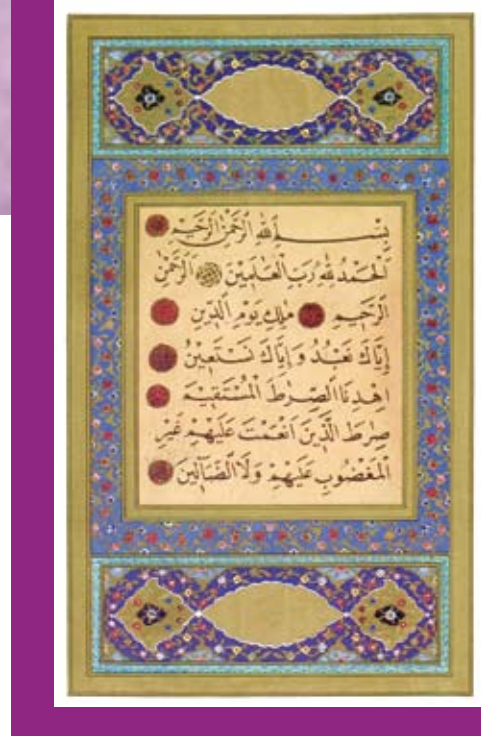 بِسْمِ اللهِ الرَّحْمٰنِ الرَّحِيمِ
اَلْحَمْدُ لِلّٰهِ رَبِّ الْعَالَمِينَ الرَّحْمٰنِ
الرَّحِيمِ مٰلِكِ يَوْمِ الدِّينِ
إِيَّاكَ نَعْبُدُ وَإِيَّاكَ نَسْتَعِينُ
اِهْدِنَا الصِّرَاطَ الْمُسْتَقِيمَ
صِرَاطَ الَّذِينَ اَنْعَمْتَ عَلَيْهِمْ غَيْرِ
الْمَغْضُوبِ عَلَيْهِمْ وَلَا الضَّٓالِّينَ